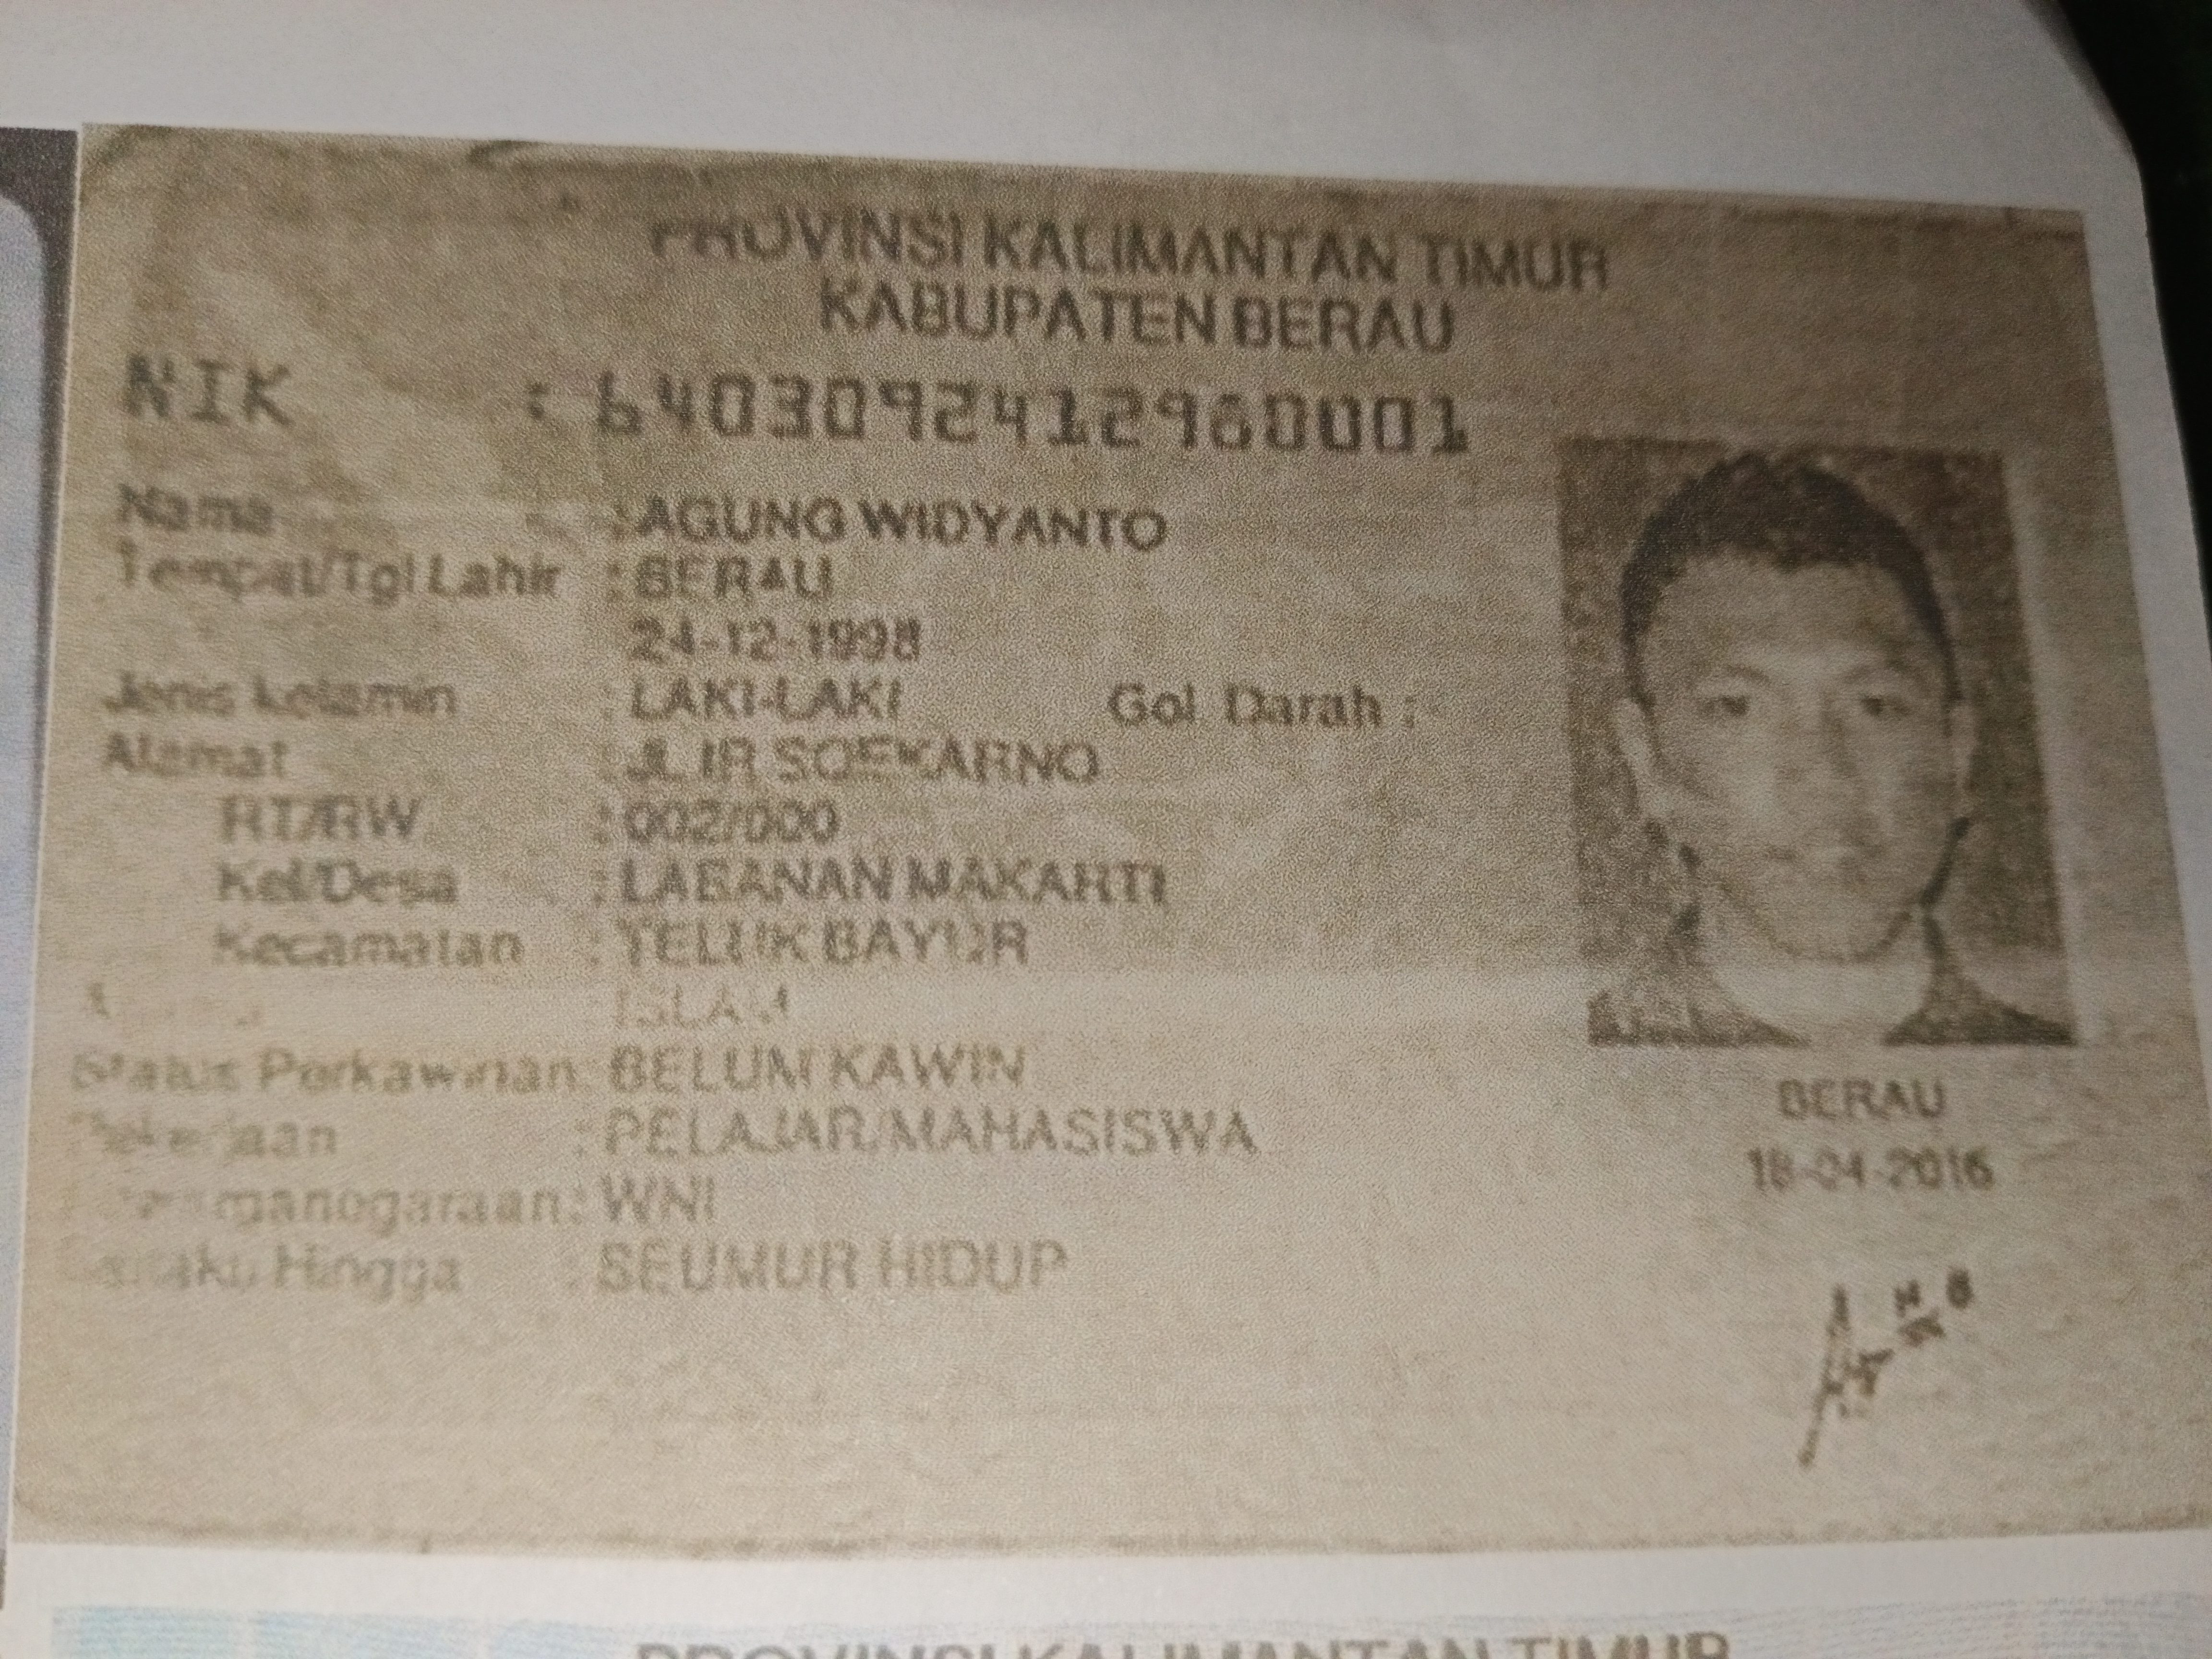 PROVINSI KALIMANTAN TIMUR
KABUPATEN BERAU
NIK : 6403092412960001
Nama : AGUNG WIDYANTO
Tempat/Tgl Lahir : BERAU
24-12-1998
Jenis kelamin : LAKI-LAKI Gol Darah :
Alamat : JL IR SOEKARNO
RT/RW : 002/000
Kel/Desa : LABANAN MAKARTI
Kecamatan : TELUK BAYUR
ISLAM
Status Perkawinan : BELUM KAWIN
: PELAJAR/MAHASISWA
: WNI
Hingga : SEUMUR HIDUP
BERAU
18-04-2016
PROVINSI KALIMANTAN TIMUR